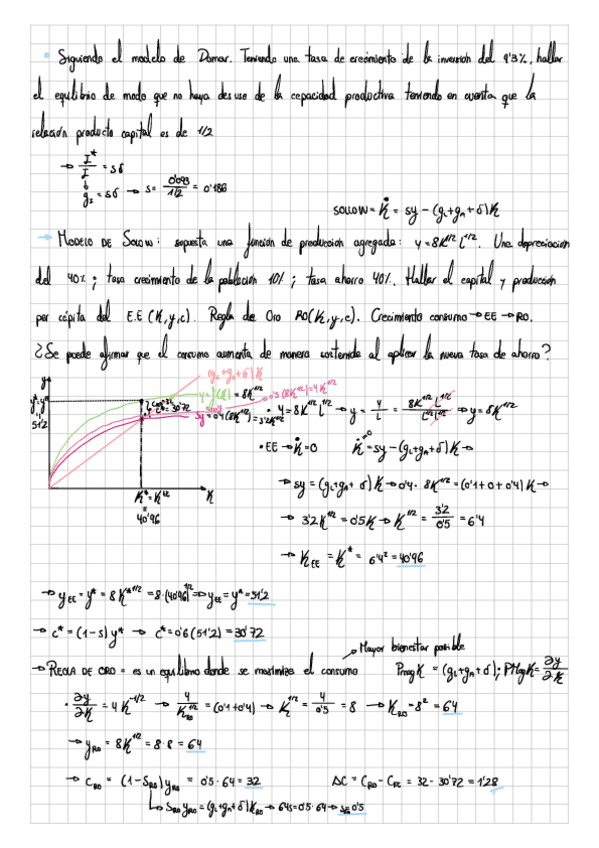 • Siguiendo el modelo de Domar. Teniendo una tasa de crecimiento de la inversión del 9'3%, hallar
el equilibrio de modo que no haya desuso de la capacidad productiva teniendo en cuenta que la
relación producto capital es de 1/2
→ İ*/I = sσ
g_I = sσ → s = 0'093/(1/2) = 0'186
SOLOW = K̇ = sy - (g_L+g_A+δ)K
→ MODELO DE SOLOW: supuesta una función de producción agregada: Y = 8K^1/2 L^1/2. Una depreciación
del 40%; tasa crecimiento de la población 10%; tasa ahorro 40%. Hallar el capital y producción
per cápita del E.E (K,y,c). Regla de Oro RO(K,y,c). Crecimiento consumo → EE → RO.
¿Se puede afirmar que el consumo aumenta de manera sostenida al aplicar la nueva tasa de ahorro?
(g_L+g_A+δ)K
y
y=f(K) = 8K^1/2
0'5(8K^1/2)=4K^1/2
sy = 0'4(8K^1/2) = 3'2K^1/2
51'2
K
40'96
• Y = 8K^1/2 L^1/2 → y = Y/L = 8K^1/2 L^1/2 / L^1/2 L^1/2 → y = 8K^1/2
• EE → K̇=0 K̇ = sy - (g_L+g_A+δ)K →
→ sy = (g_L+g_A+δ)K → 0'4 · 8K^1/2 = (0'1+0+0'4)K →
→ 3'2K^1/2 = 0'5K → K^1/2 = 3'2/0'5 = 6'4
→ K_EE = K* = 6'4² = 40'96
→ y_EE = y* = 8K*^1/2 = 8·(40'96)^1/2 → y_EE = y* = 51'2
→ c* = (1-s)y* → c* = 0'6(51'2) = 30'72
Mayor bienestar posible
→ REGLA DE ORO = es un equilibrio donde se maximiza el consumo PmagK = (g_L+g_A+δ); PMagK = ∂y/∂K
• ∂y/∂K = 4K^-1/2 → 4/K_RO^1/2 = (0'1+0'4) → K^1/2 = 4/0'5 = 8 → K_RO = 8² = 64
→ y_RO = 8K^1/2 = 8·8 = 64
→ c_RO = (1-s_RO)y_RO = 0'5·64 = 32 ΔC = C_RO - C_EE = 32 - 30'72 = 1'28
↳ s_RO y_RO = (g_L+g_A+δ)K_RO → 64s = 0'5·64 → s = 0'5